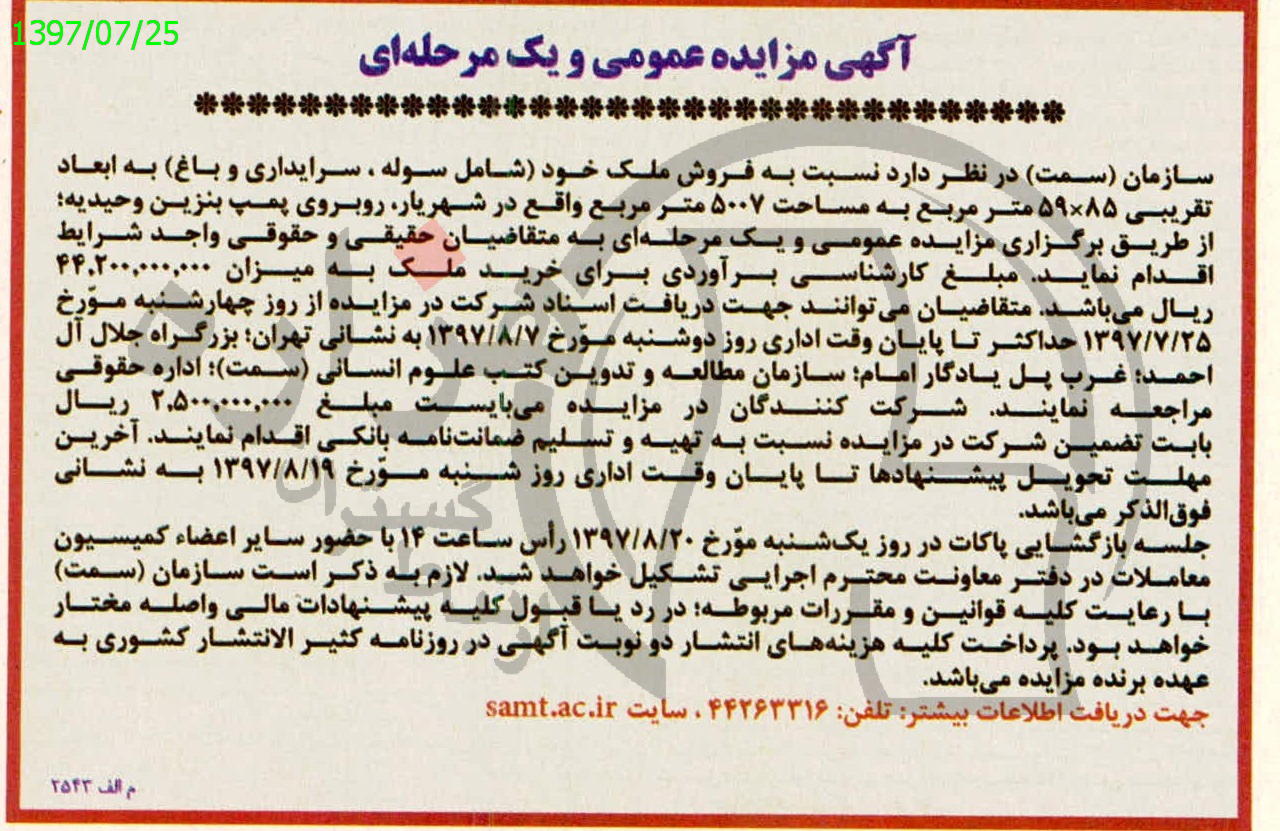 1397/07/25
آگهی مزایده عمومی و یک مرحله‌ای
سازمان (سمت) در نظر دارد نسبت به فروش ملک خود (شامل سوله ، سرایداری و باغ) به ابعاد
تقریبی ۸۵×۵۹ متر مربع به مساحت ۵۰۰۷ متر مربع واقع در شهریار، روبروی پمپ بنزین وحیدیه؛
از طریق برگزاری مزایده عمومی و یک مرحله‌ای به متقاضیان حقیقی و حقوقی واجد شرایط
اقدام نماید، مبلغ کارشناسی برآوردی برای خرید ملک به میزان ۴۴,۲۰۰,۰۰۰,۰۰۰
ریال می‌باشد. متقاضیان می‌توانند جهت دریافت اسناد شرکت در مزایده از روز چهارشنبه موّرخ
۱۳۹۷/۷/۲۵ حداکثر تا پایان وقت اداری روز دوشنبه موّرخ ۱۳۹۷/۸/۷ به نشانی تهران؛ بزرگراه جلال آل
احمد؛ غرب پل یادگار امام؛ سازمان مطالعه و تدوین کتب علوم انسانی (سمت)؛ اداره حقوقی
مراجعه نمایند. شرکت کنندگان در مزایده می‌بایست مبلغ ۲,۵۰۰,۰۰۰,۰۰۰ ریال
بابت تضمین شرکت در مزایده نسبت به تهیه و تسلیم ضمانت‌نامه بانکی اقدام نمایند. آخرین
مهلت تحویل پیشنهادها تا پایان وقت اداری روز شنبه موّرخ ۱۳۹۷/۸/۱۹ به نشانی
فوق‌الذکر می‌باشد.
جلسه بازگشایی پاکات در روز یک‌شنبه موّرخ ۱۳۹۷/۸/۲۰ رأس ساعت ۱۴ با حضور سایر اعضاء کمیسیون
معاملات در دفتر معاونت محترم اجرایی تشکیل خواهد شد. لازم به ذکر است سازمان (سمت)
با رعایت کلیه قوانین و مقررات مربوطه؛ در رد یا قبول کلیه پیشنهادات مالی واصله مختار
خواهد بود. پرداخت کلیه هزینه‌های انتشار دو نوبت آگهی در روزنامه کثیر الانتشار کشوری به
عهده برنده مزایده می‌باشد.
جهت دریافت اطلاعات بیشتر: تلفن: ۴۴۲۶۳۳۱۶ ، سایت samt.ac.ir
م الف ۲۵۴۳